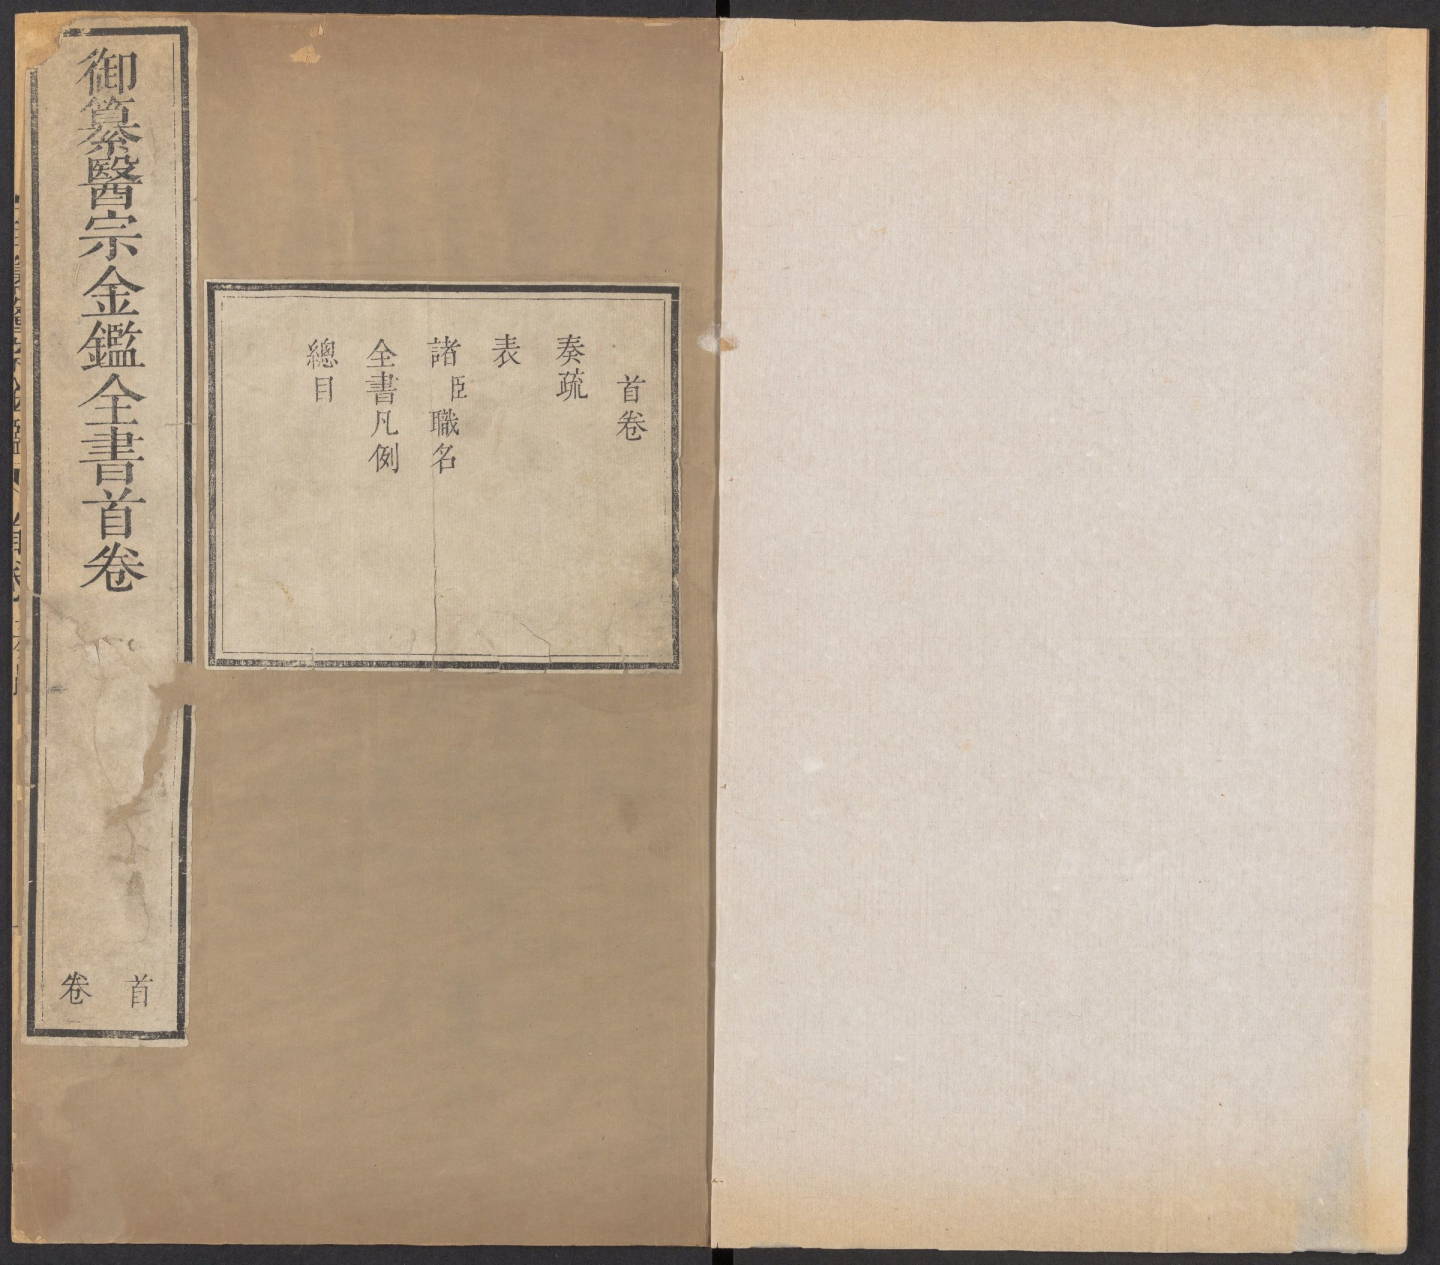 首卷
奏疏
表
諸臣職名
全書凡例
總目
御纂醫宗金鑑全書首卷
首卷